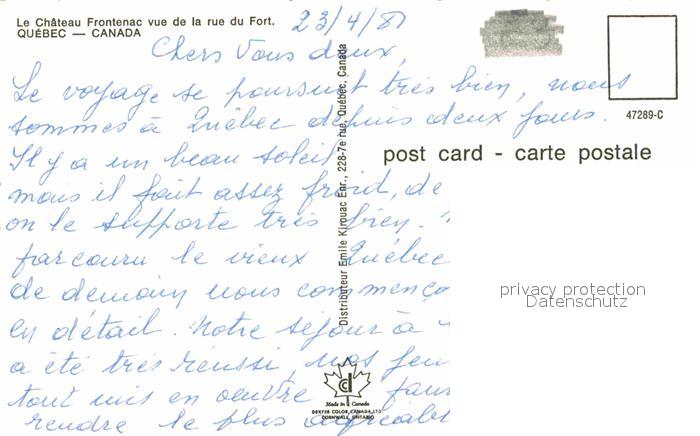 Le Château Frontenac vue de la rue du Fort.
QUÉBEC — CANADA
23/4/81
Chers Vous deux,
Le voyage se poursuit très bien, nous
sommes à Québec depuis deux jours.
Il y a un beau soleil
mais il fait assez froid, de
on le supporte très bien.
parcouru le vieux Québec
de demain nous commenço
en détail. Notre séjour à
a été très réussi, nos
tout mis en oeuvre
rendre le plus agréabl
47289-C
post card - carte postale
Distributeur Emile Kirouac Enr., 228-7e rue, Québec, Canada
privacy protection
Datenschutz
Made in Canada
DEXTER COLOR CANADA LTD.
CORNWALL, ONTARIO